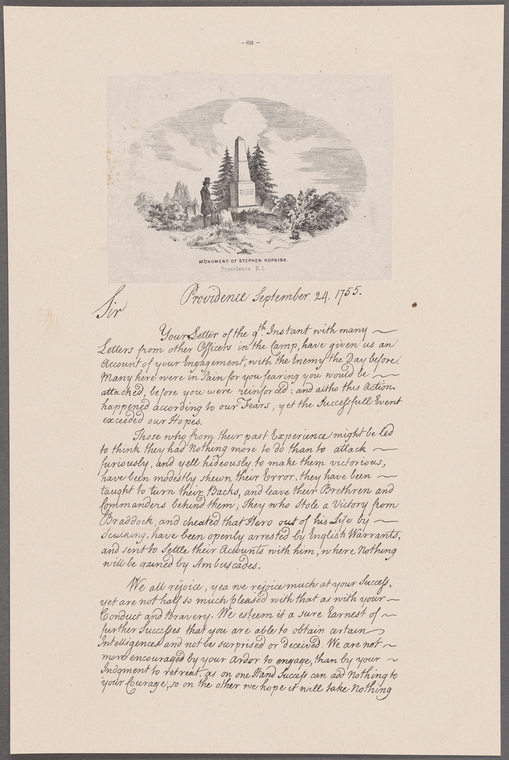 - 60 -
MONUMENT OF STEPHEN HOPKINS
Providence R.I.
Providence September. 24. 1755.
Sir
Your Letter of the 9th Instant with many
Letters from other Officers in the Camp, have given us an
Account of your Engagement, with the Enemy the Day before.
Many here were in Pain for you fearing you would be
attacked, before you were reinforced; and altho this Action
happened according to our Fears, yet the Successfull Event
exceeded our Hopes.
Those who from their past Experience might be led
to think they had Nothing more to do than to attack
furiously, and yell hideously to make them victorious,
have been modestly shewn their Error, they have been
taught to turn their Backs, and leave their Brethren and
Commanders behind them; they who stole a Victory from
Braddock, and cheated that Hero out of his Life by
have been openly arrested by English Warrants,
and sent to Settle their Accounts with him, where Nothing
will be gained by Ambuscades.
We all rejoice, yea we rejoice much at your Success,
yet are not half so much pleased with that as with your
Conduct and Bravery. We esteem it a sure Earnest of
further Successes that you are able to obtain certain
Intelligence, and not be surprised or deceived. We are not
more encouraged by your Ardor to engage, than by your
Judgment to retreat, as on one Hand Success can add Nothing to
your Courage, so on the other we hope it will take Nothing